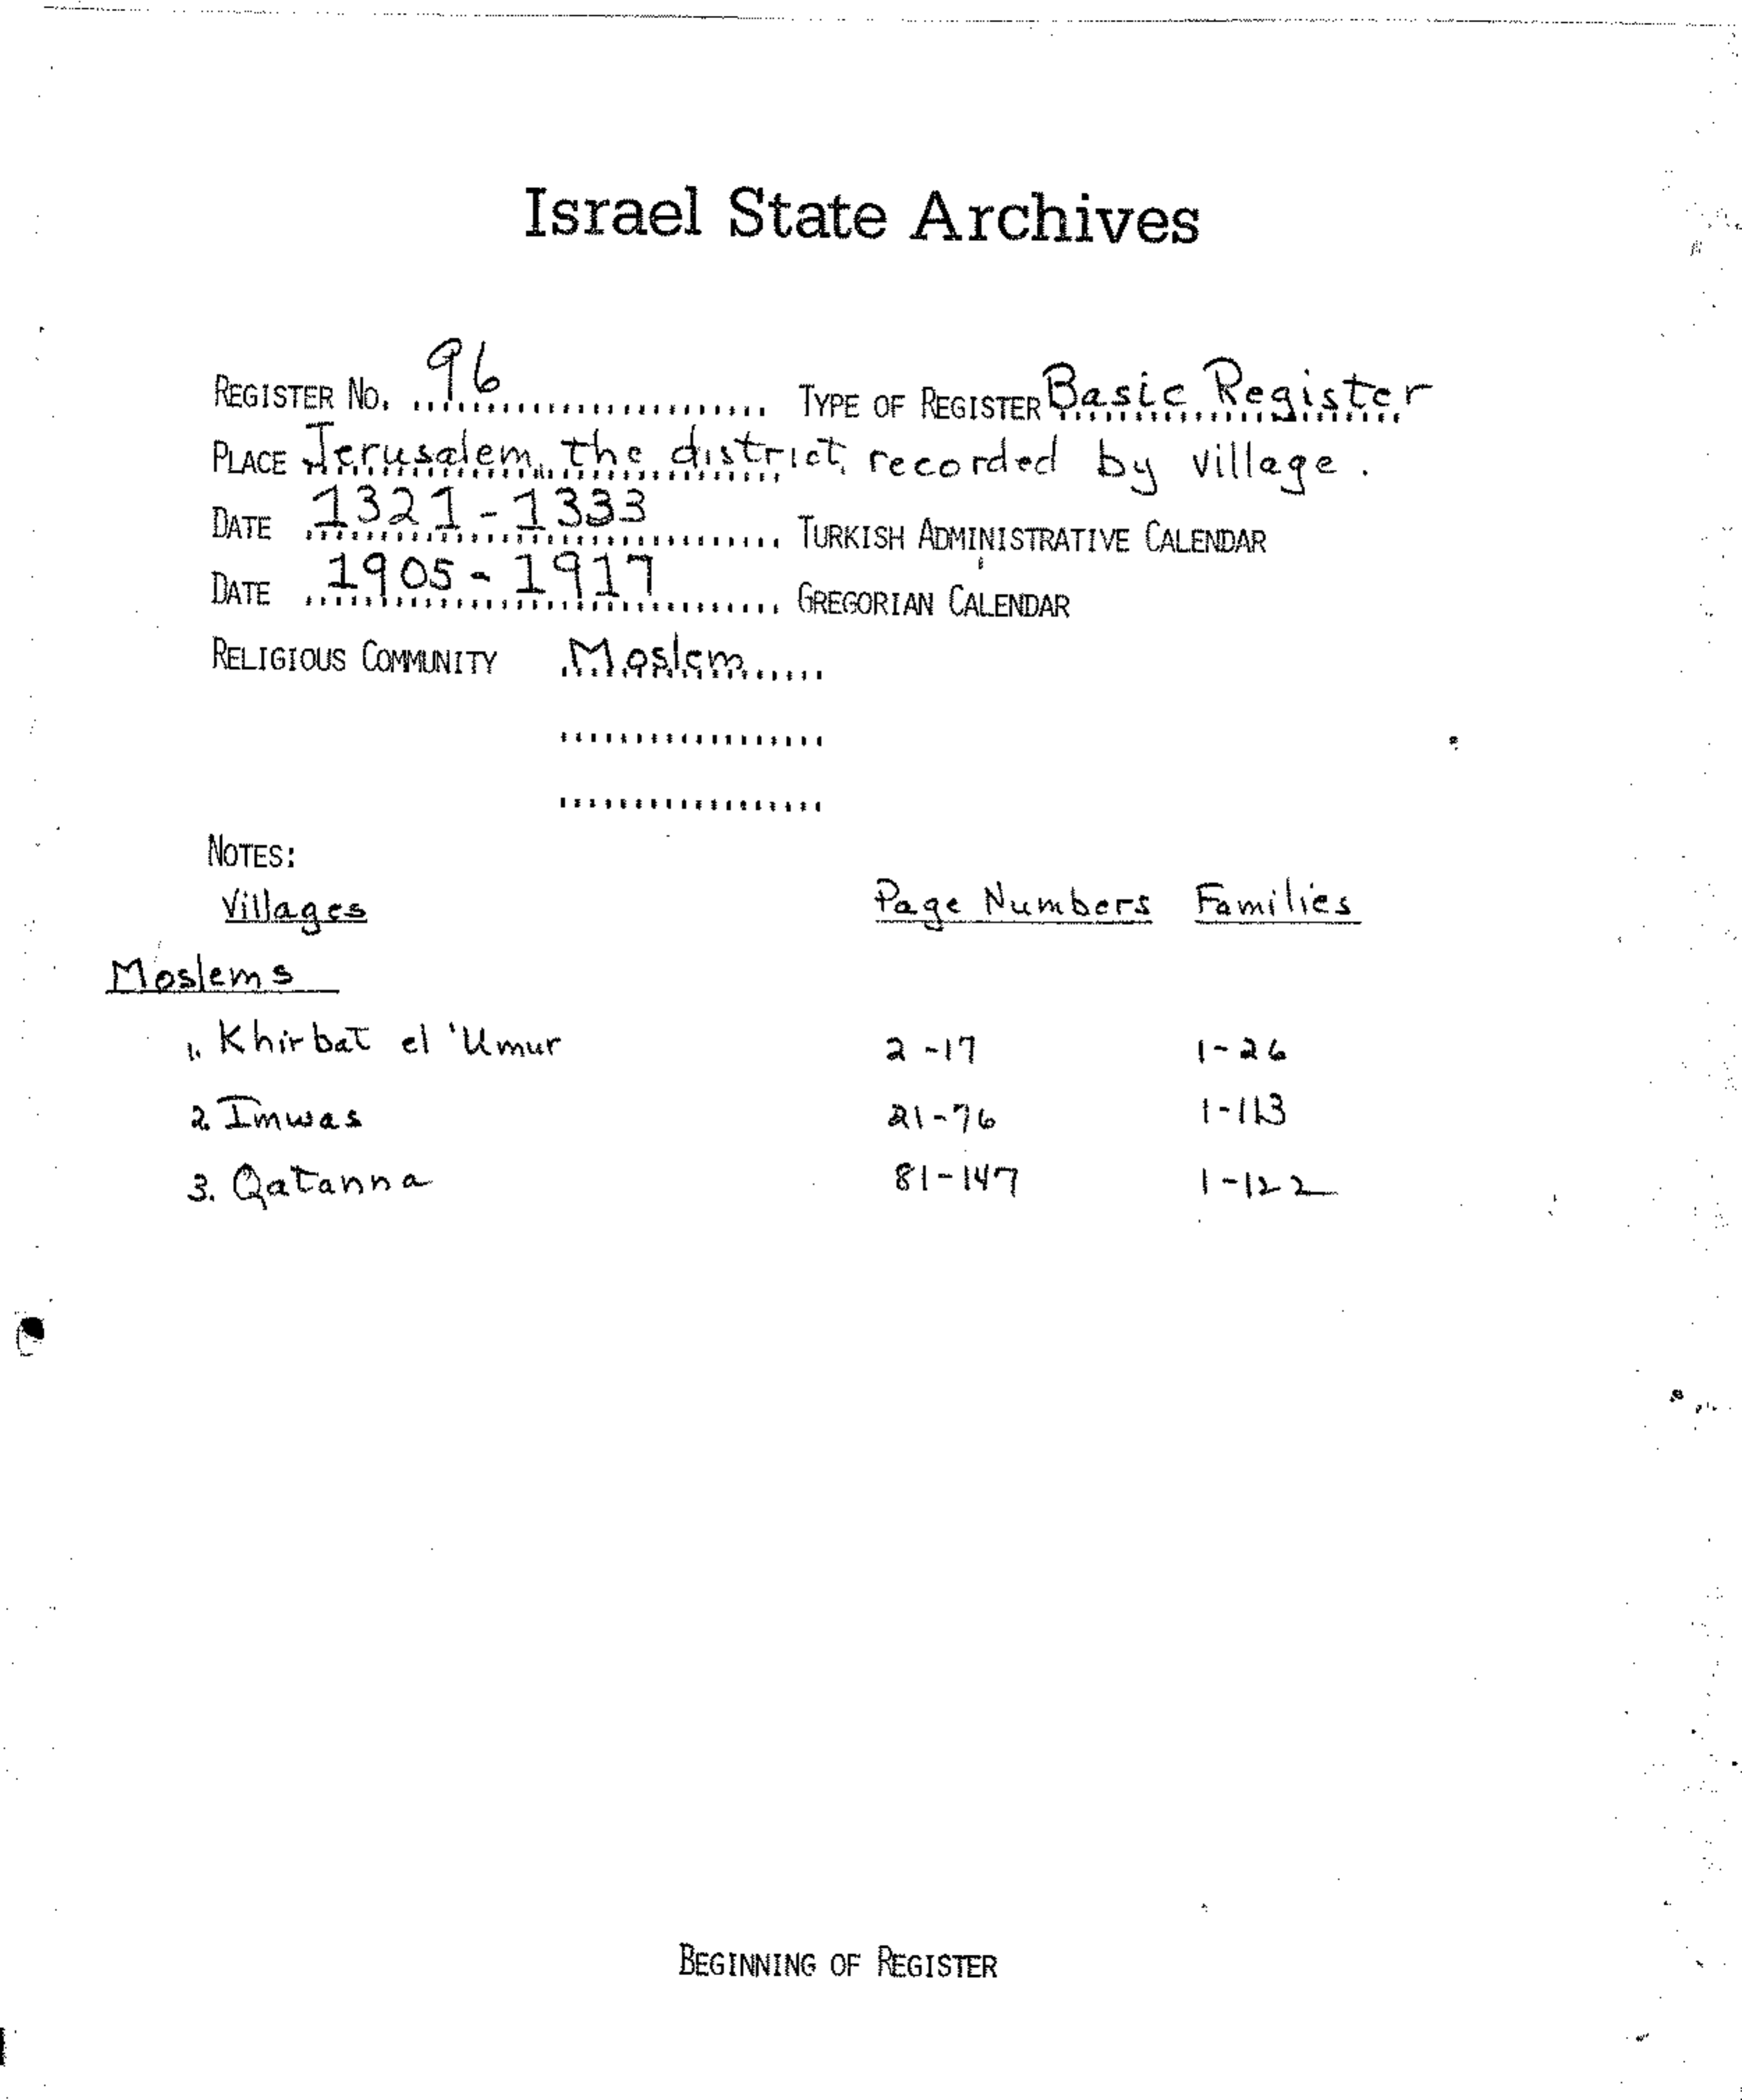 Israel State Archives
REGISTER NO. 96 TYPE OF REGISTER Basic Register
PLACE Jerusalem, the district, recorded by village.
DATE 1321-1333 TURKISH ADMINISTRATIVE CALENDAR
DATE 1905-1917 GREGORIAN CALENDAR
RELIGIOUS COMMUNITY Moslem
NOTES:
Villages Page Numbers Families
Moslems
1. Khirbat el 'Umur 2-17 1-26
2. Imwas 21-76 1-113
3. Qatanna 81-147 1-122
BEGINNING OF REGISTER